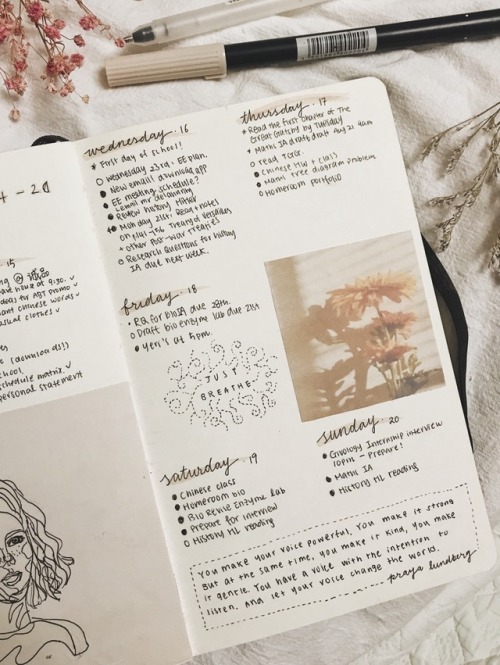 4 - 20
15
ng @
have hour at 9:30. ✓
ideas for AGT promo ✓
chinese words ✓
casual clothes ✓
(download)
school
schedule matrix. ✓
personal statement
wednesday · 16
* First day of school!
○ wednesday 23rd - EE plan.
● New email, app
● EE meeting schedule?
● Review history
Mon 21st Read + notes
on Treaty of Versailles
+ other Post-war treaties
○ Research Questions for history
IA due next week.
thursday · 17
Read the first chapter of The
Great Gatsby by Tuesday
● Math IA draft draft Aug 21 4am
○ read TGTBR.
● Chinese HW + class
● Math tree diagram problems
○ Homeroom portfolio
friday · 18
● RQ for bio IA due 28th.
○ Draft bio enzyme lab due 21st
● Yeri's at 5pm.
JUST
BREATHE
saturday · 19
● Chinese class
● Homeroom bio
● Bio Revise Enzyme lab
● Prepare for interview
○ History HL reading
sunday · 20
● Givology Internship interview
10pm - Prepare!
● Math IA
● History HL reading
You make your voice powerful. You make it strong
But at the same time, you make it kind, you make
it gentle. You have a voice with the intention to
listen. And let your voice change the world.
- praya lundberg